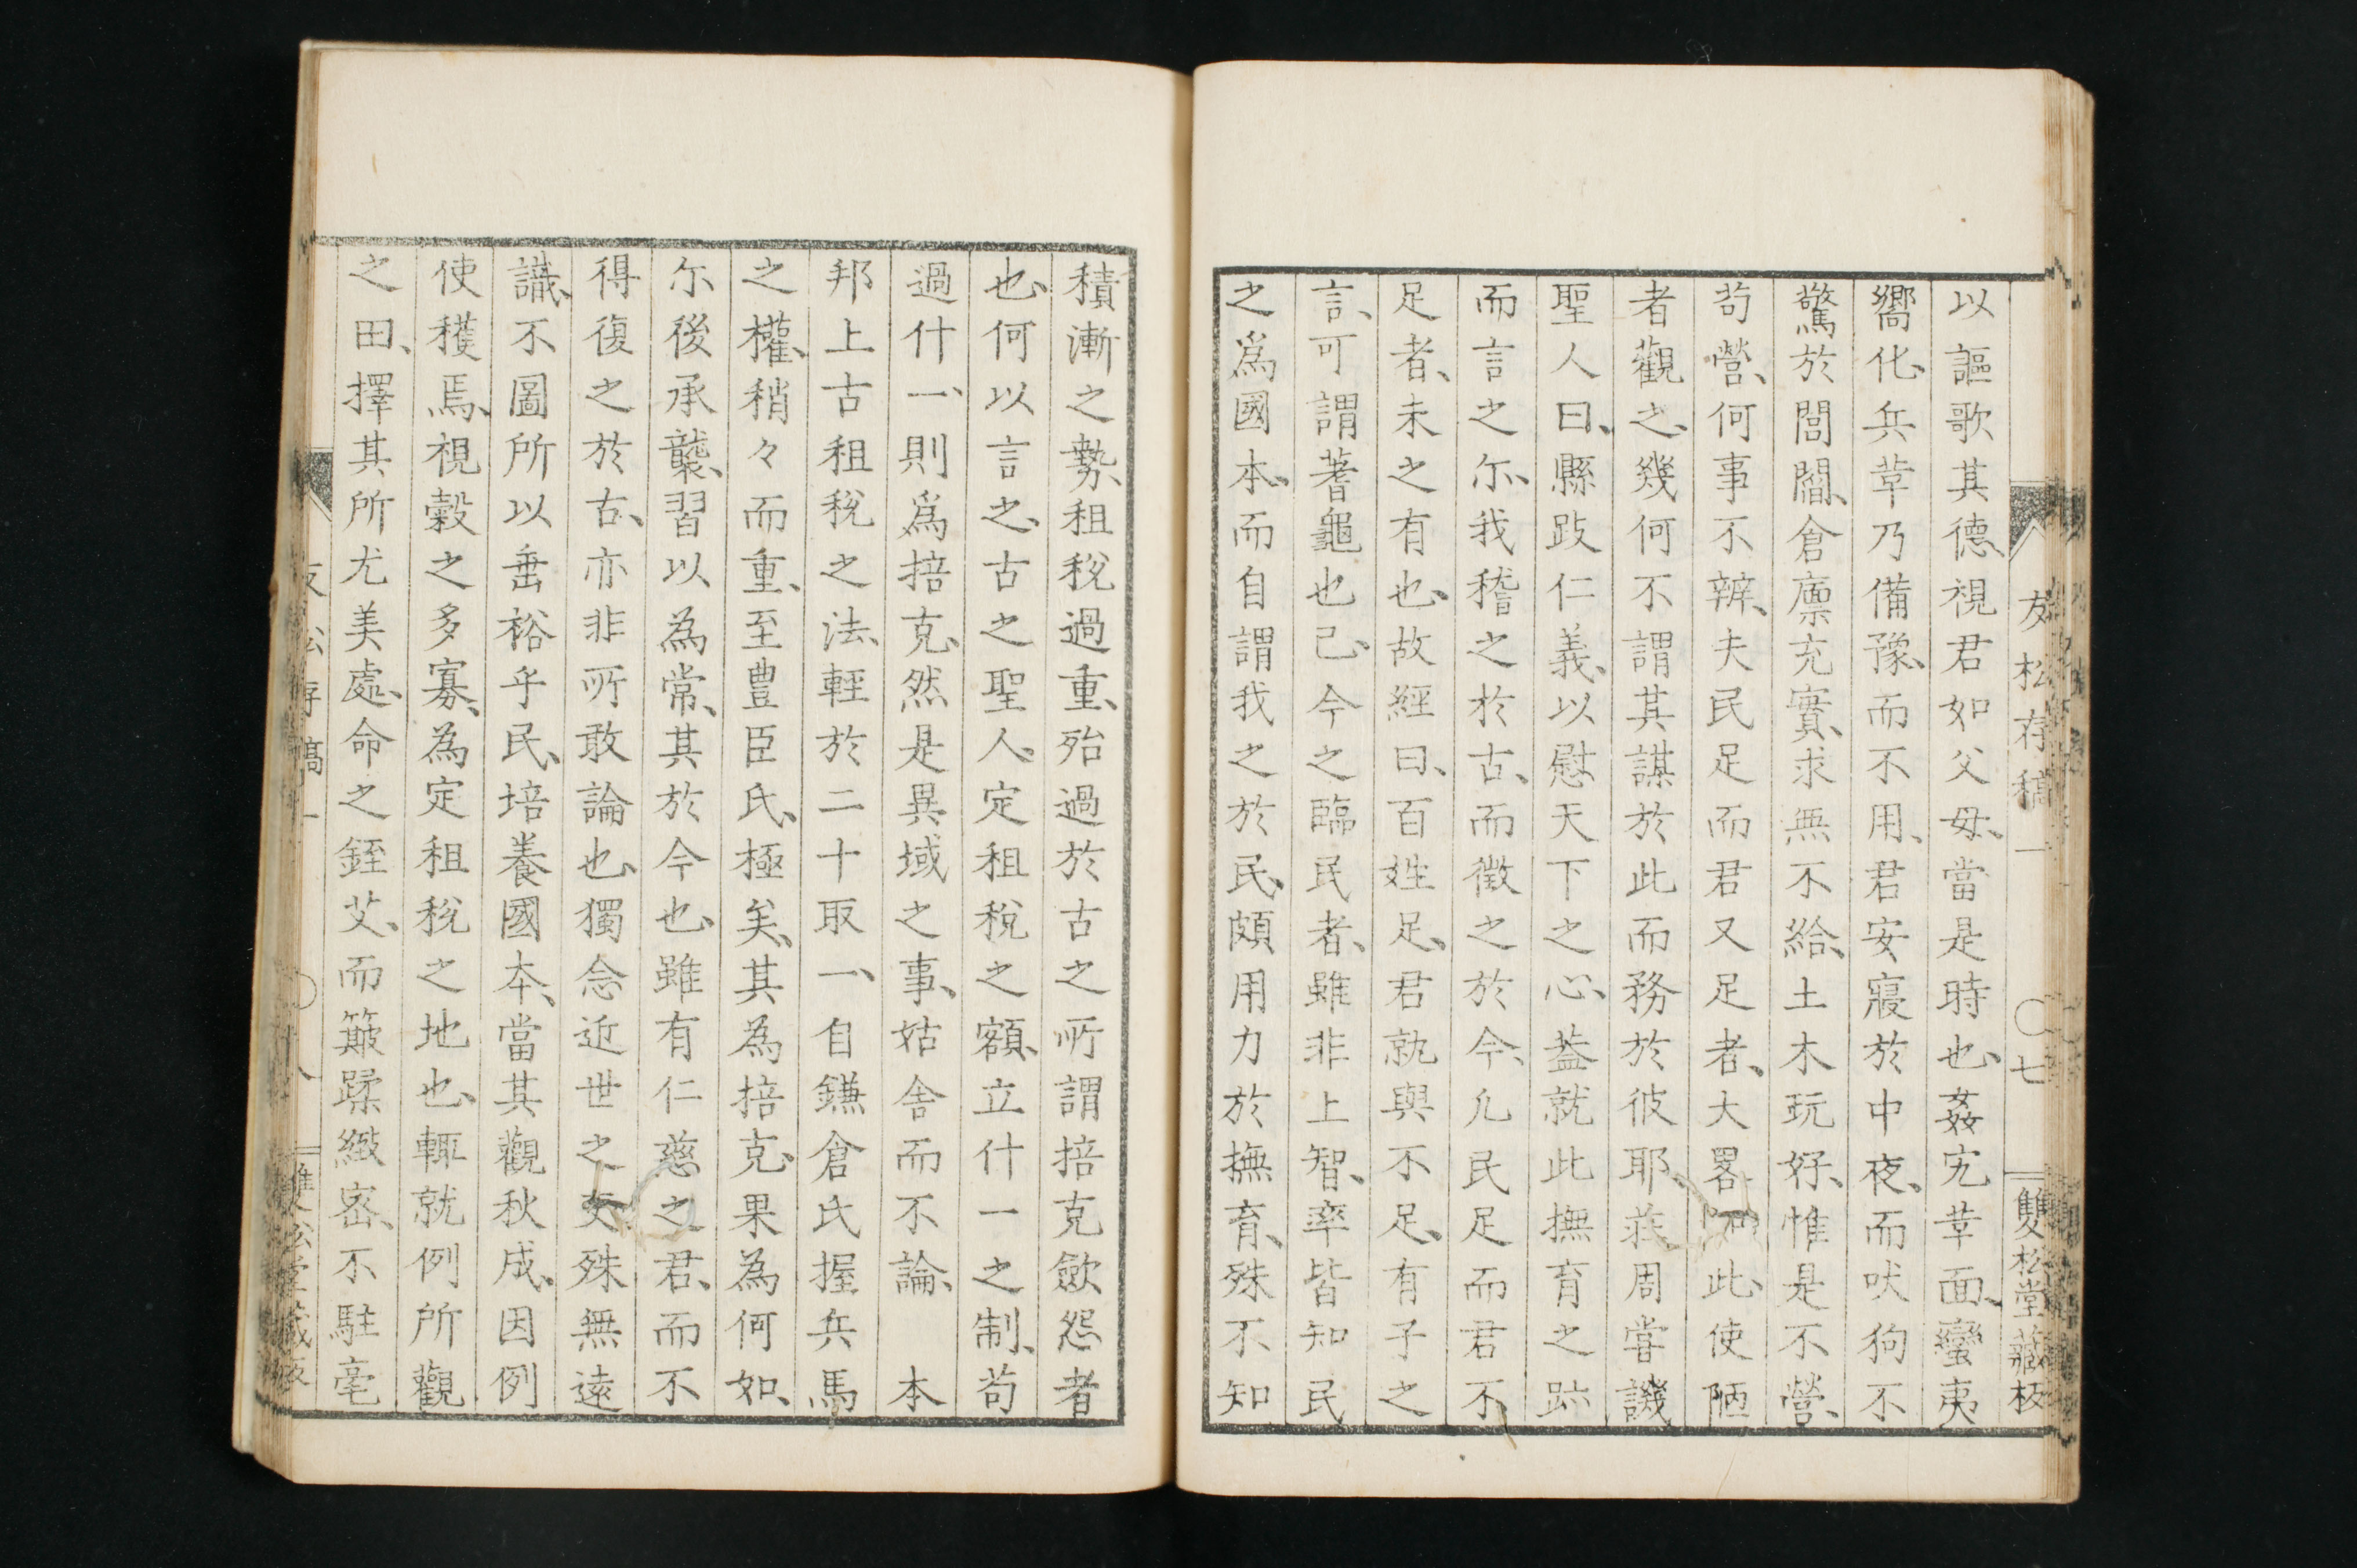 友松存稿一 〇七 雙松堂藏板
以謳歌其德、視君如父母、當是時也、姦宄革面、蠻夷
嚮化、兵革乃備豫、而不用、君安寢於中夜、而吠狗不
驚於閭閻、倉廩充實、求無不給、土木玩好、惟是不營、
苟營、何事不辨、夫民足而君又足者、大畧此、使陋
者觀之、幾何不謂其謀於此而務於彼耶、莊周嘗譏
聖人曰、縣跂仁義、以慰天下之心、葢就此撫育之跡
而言之尓、我稽之於古、而徵之於今、凢民足而君不
足者、未之有也、故經曰、百姓足、君孰與不足、有子之
言、可謂蓍龜也已、今之臨民者、雖非上智、率皆知民
之爲國本、而自謂我之於民、頗用力於撫育、殊不知
積漸之勢、租稅過重、殆過於古之所謂掊克歛怨者
也、何以言之、古之聖人、定租稅之額、立什一之制、苟
過什一、則爲掊克、然是異域之事、姑舍而不論、 本
邦上古租稅之法、輕於二十取一、自鎌倉氏握兵馬
之權、稍々而重、至豊臣氏、極矣、其為掊克、果為何如、
尓後承襲、習以為常、其於今也、雖有仁慈之君、而不
得復之於古、亦非所敢論也、獨念近世之吏殊無遠
識、不圖所以垂裕乎民、培養國本、當其觀秋成、因例
使穫焉、視穀之多寡、為定租稅之地也、輒就例所觀
之田、擇其所尤美處、命之銍艾、而簸蹂緻密、不駐毫
友松存稿一 〇 八 雙松堂藏板